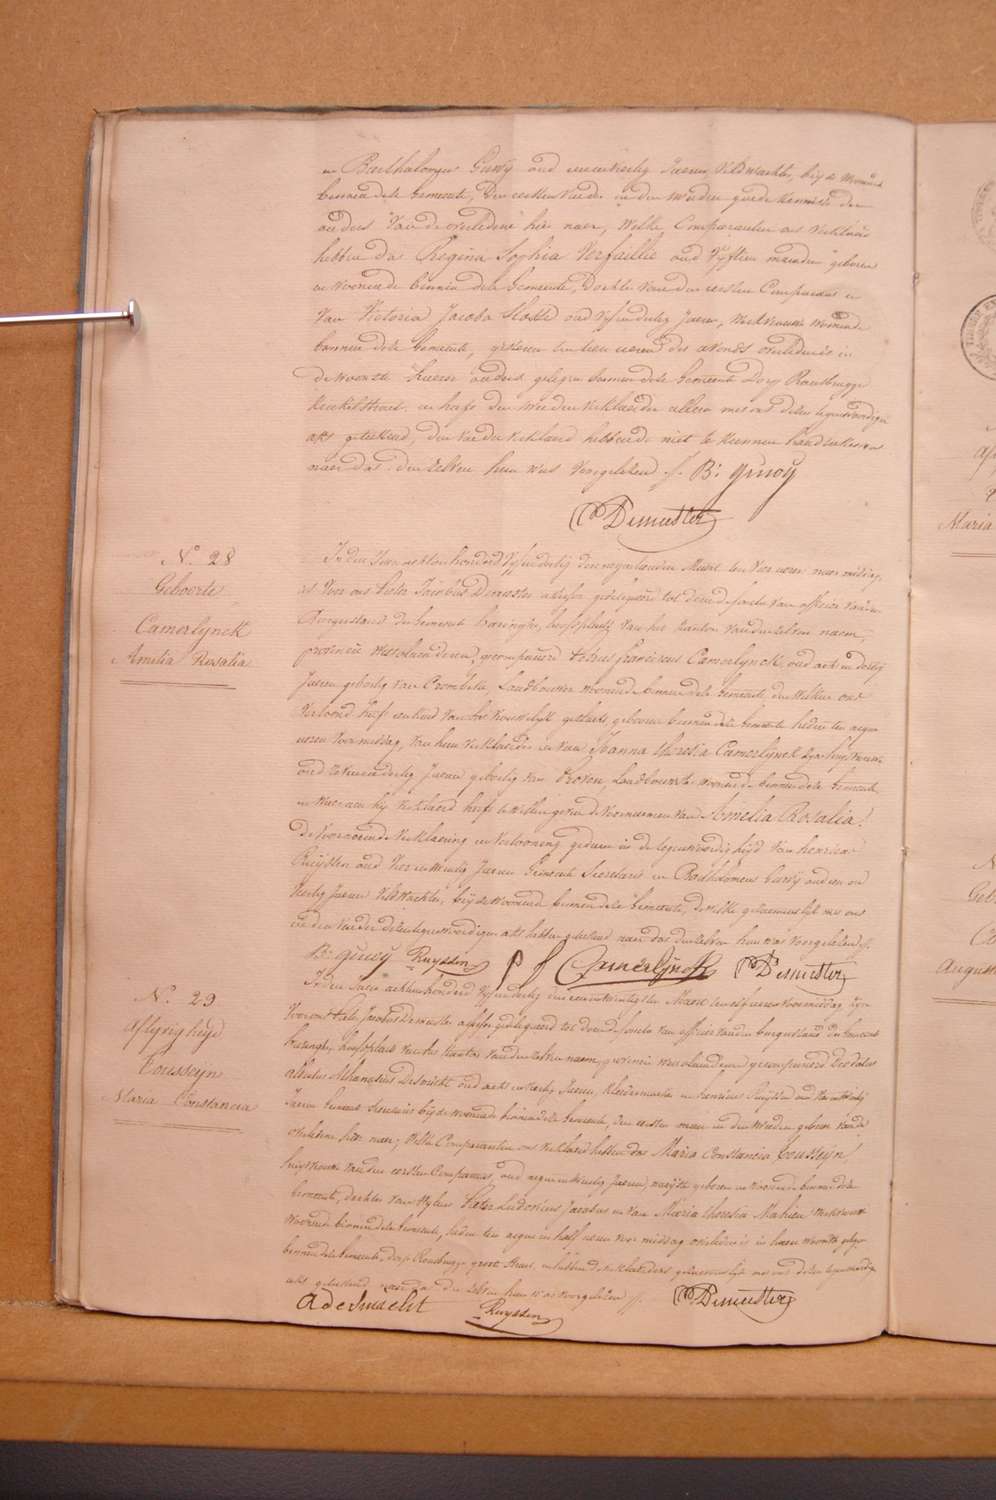 en Barthalomeus Guwÿ oud eenenveertig Jaeren, Veldwachter, bijde woonende
binnen dese Gemeente, Den eersten Vader in den tweeden goede kennisse der
ouders Van de overledene hier naer, Welke Comparanten ons Verklaerd
hebben dat Regina Sophia Verfaillie oud Vÿftien maenden geboren
en Woonende binnen dese Gemeente, dochter van den eersten Comparant en
Van Victoria Jacoba oud Vijfendertig Jaeren, Werkvrouw Woonende
binnen dese Gemeente, gisteren ten tien ueren des avonds overleden is in
de Woonste haerer ouders gelegen binnen dese Gemeente Dorp Rousbrugge
straet en heeft den tweeden Verklaerder alleen met ons dezen tegenwoordigen
akt geteekend, den Vader Verklaerd hebbende niet te kunnen handteekenen
naer dat den zelven hun was voorgelezen /. B: guwy
PDemeester
N.º 28
Geboorte
Camerlynck
Amelia Rosalia
In den Jaere achtienhonderd Vijfendertig den negentienden Maert ten Vier ueren naer middag,
is Voor ons Pieter Jacobus Demeester schepen gedelegeerd tot de functie van officier van den
Burgerstand der Gemeente haringhe, hoofdplaets van het Kanton van den zelven naem,
provincie Westvlaenderen, gecompareerd Petrus franciscus Camerlynck, oud acht en dertig
Jaeren geboortig van Crombeke, Landbouwer woonende binnen dese Gemeente den Welken ons
Vertoond heeft een kind van het Vrouwelijk geslacht, geboren binnen dese Gemeente heden ten negen
ueren Voormiddag, Van hem Verklaerder en van Joanna theresia Camerlynck zyne huysvrouw
oud dertig Jaeren geboortig van Proven, Landbouwster woonende binnen dese Gemeente
en Waer aen hy Verklaerd heeft te willen geven de Voornaemen Van Amelia Rosalia.
De Voornoemde Verklaering en Vertooning gedaen in de tegenwoordigheyd Van henricus
Ruyssen oud Vier en twintig Jaeren Gemeente Secretaris en Barthelomeus Guwÿ oud een en
Veertig Jaeren Veldwachter, bijde Woonende binnen dese Gemeente, dewelke gezaementlijk met ons
en den Vader deze tegenwoordigen akt hebben geteekend naer dat den zelven hun was voorgelezen /.
B: guwy Ruyssen p f Camerlynck PDemeester
N.º 29
Aflyvigheyd
Cousseyn
Maria Constancia
In den Jaere achtienhonderd Vijfendertig den eenentwintigsten Maert ten elf ueren Voormiddag zyn
Voor ons Pieter Jacobus Demeester schepen gedelegeerd tot de functie van officier van den burgerstand der Gemeente
haringhe, hoofdplaets van het Kanton van den zelven naem, provincie Westvlaenderen, gecompareerd
Athanasius Desmidt oud acht en Jaeren, Kleermaeker en henricus Ruyssen oud Vier en twintig
Jaeren Gemeente Secretaris bijde woonende binnen dese Gemeente, Den eersten man en den tweeden gebuer Van de
overledene hier naer, Welke Comparanten ons Verklaerd hebben dat Maria Constancia Cousseyn,
huysvrouw van den eersten Comparant, oud negen en twintig Jaeren, geboren en Woonende binnen dese
Gemeente, dochter van Pieter Ludovicus Jacobus en van Maria theresia Mahieu Werkvrouw
Woonende binnen dese Gemeente, heden ten negen en half ueren voor middag overleden is in haere Woonste gelegen
binnen dese Gemeente, dorp Rousbrugge groote straet, en hebben de Verklaerders gezaementlijk met ons dezen tegenwoordigen
akt geteekend naer dat den zelven hun was voorgelezen /.
A desmedt Ruyssen PDemeester
Maria
Augustus